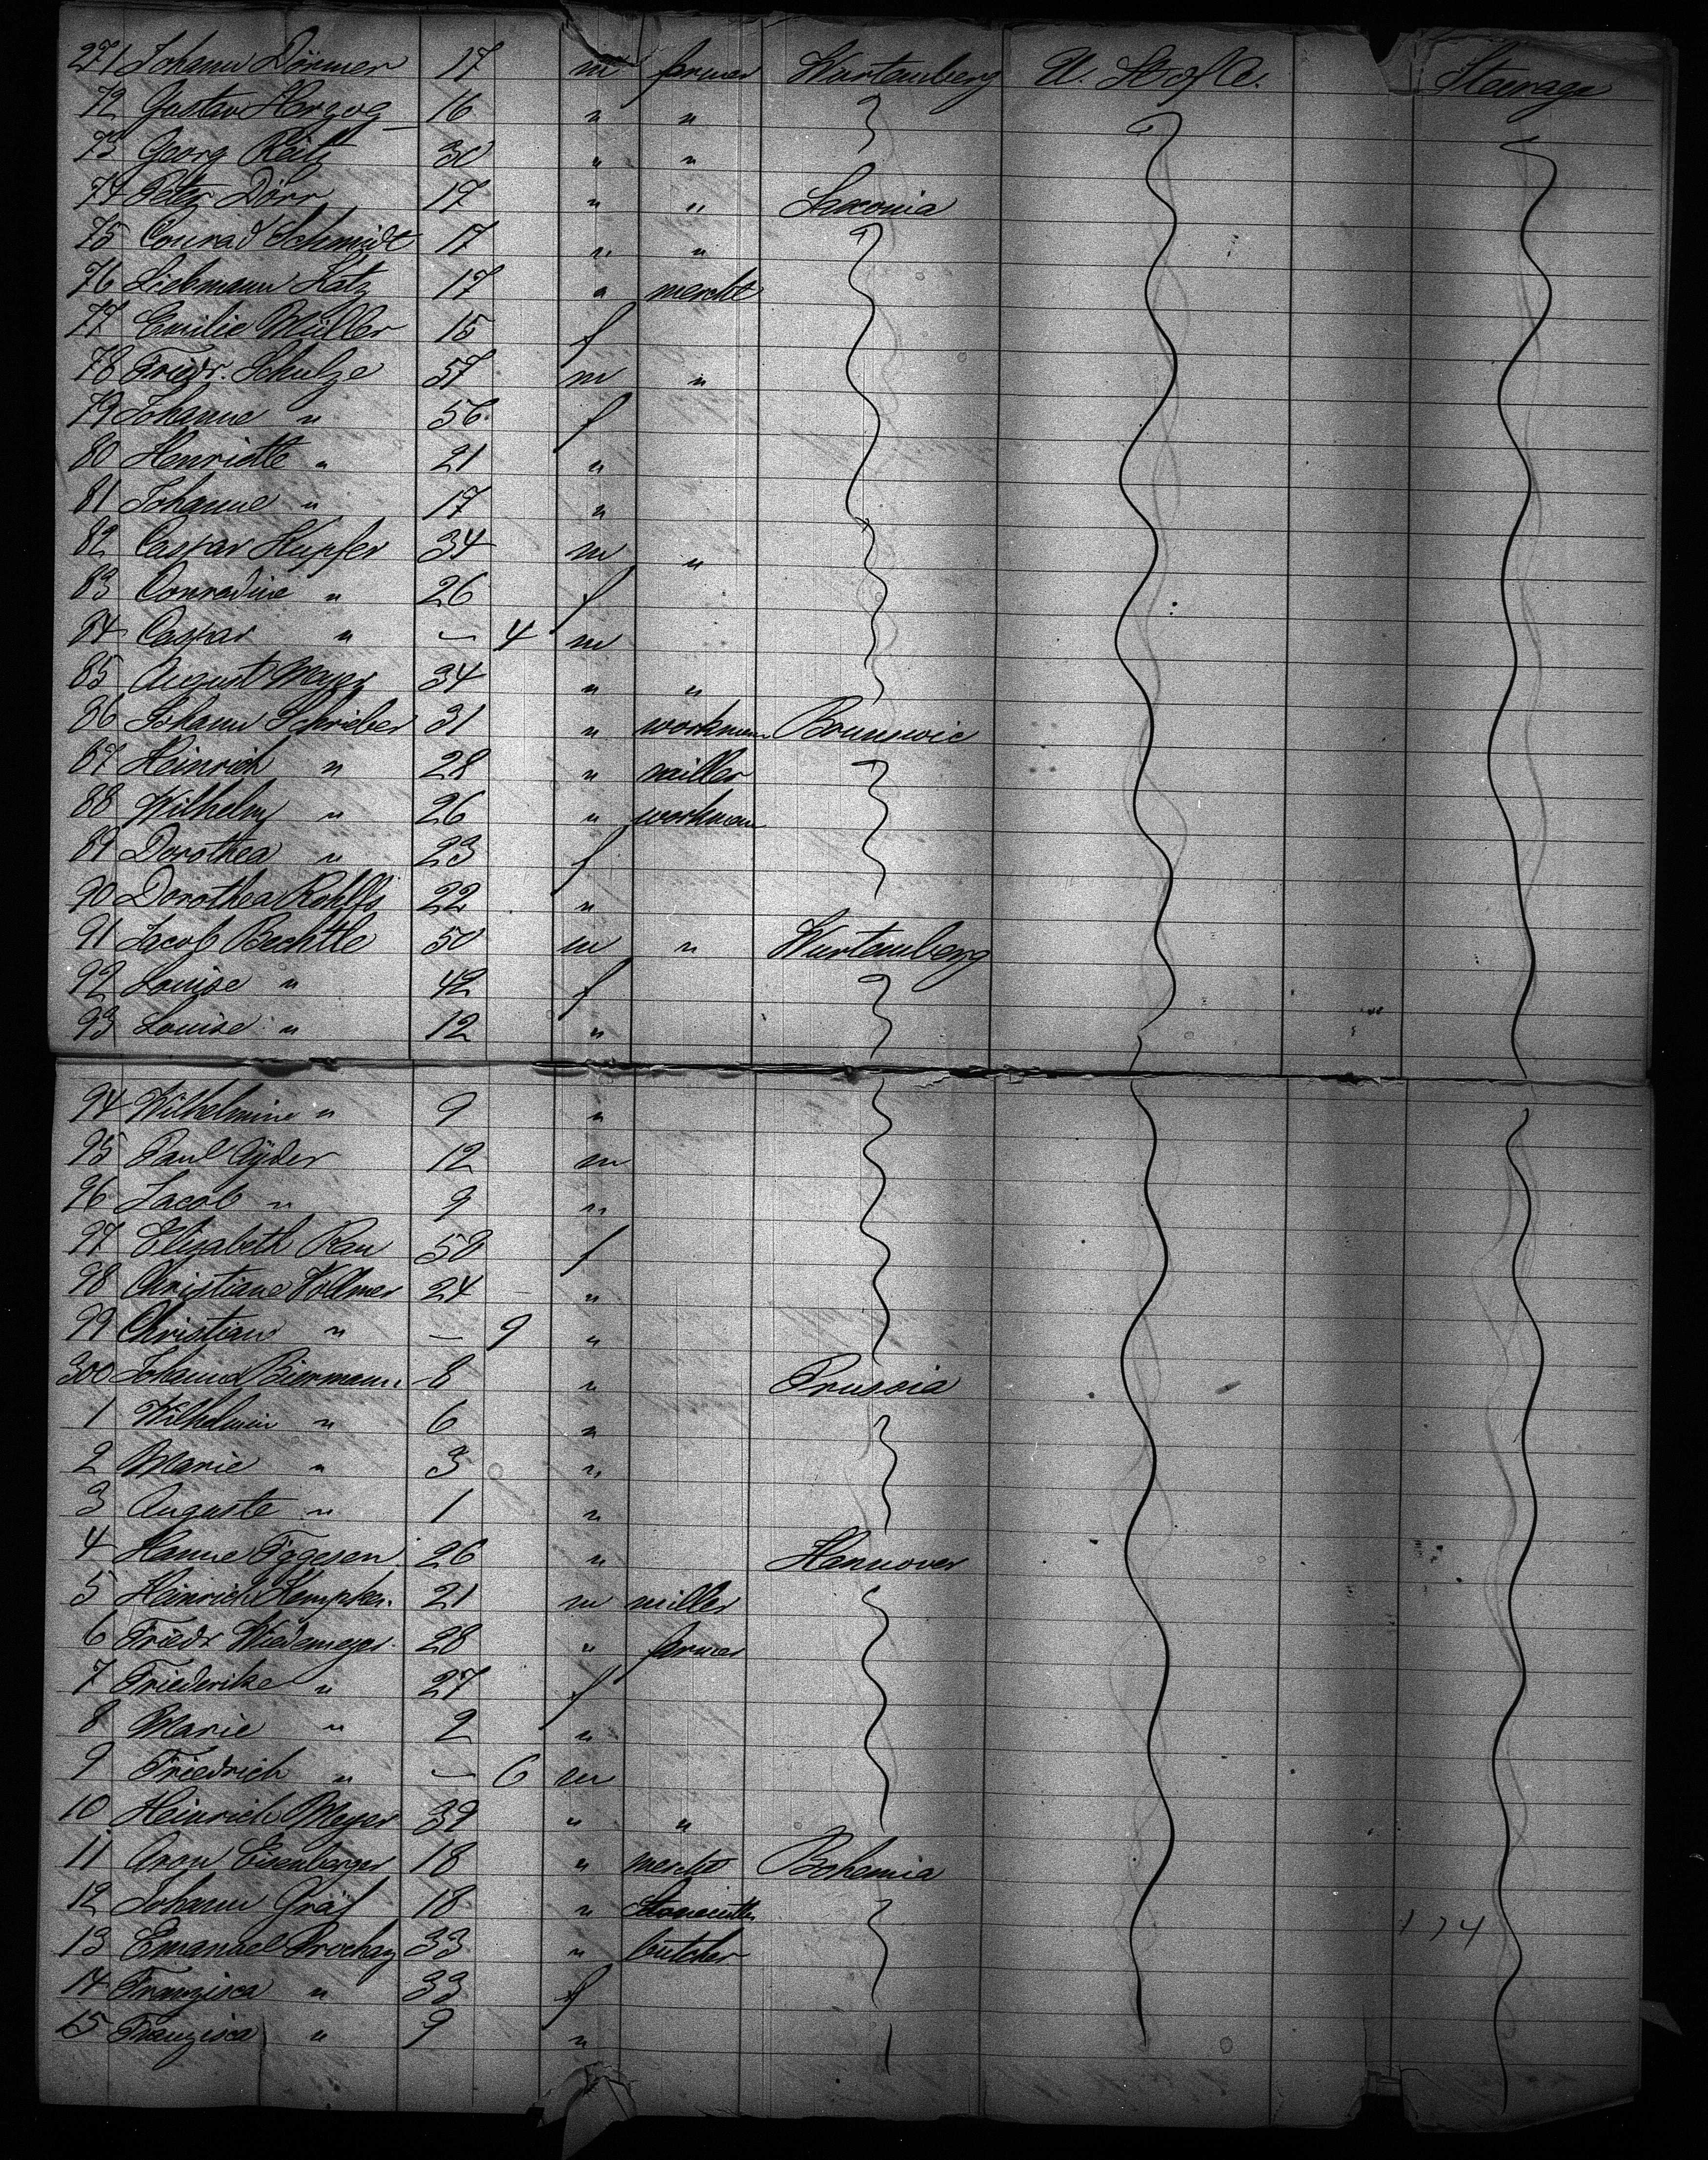 271 Johann Dörmer 17 m farmer Wurtemberg U. St of A. Steerage
72 Gustav Herzog 16 " "
73 Georg Reitz 30 " "
74 Peter Dörr 17 " " Saxonia
75 Conrad Schmidt 17 " "
76 Liebmann Katz 17 " mercht
77 Emilie Müller 15 f
78 Friedr. Schulze 57 m "
79 Johanne " 56 f
80 Henriette " 21 "
81 Johanne " 17 "
82 Caspar Hupfer 34 m "
83 Conradine " 26 f
84 Caspar " — 4 m
85 August Meyer 34 " "
86 Johann Schrieber 31 " workman Brunswic
87 Heinrich " 28 " miller
88 Wilhelm " 26 " workman
89 Dorothea " 23 f
90 Dorothea Rohlfs 22 "
91 Jacob Bechtle 50 m " Wurtemberg
92 Louise " 42 f
93 Louise " 12 "
94 Wilhelmine " 9 "
95 Paul 12 m
96 Jacob " 9 "
97 Elisabeth Rau 50 f
98 Christiane Vollmer 24 "
99 Christian " — 9 "
300 Johanna Biermann 8 " Prussia
1 Wilhelmin " 6 "
2 Marie " 3 "
3 Auguste " 1 "
4 Hanne Eggesen 26 " Hannover
5 Heinrich 21 m miller
6 Friedr Wiedemeyer 28 " farmer
7 Friederike " 27 f
8 Marie " 2 "
9 Friedrich " — 6 m
10 Heinrich Meyer 39 " "
11 Aron Eisenberger 18 " mercht Bohemia
12 Johann Gräf 18 "
13 Emanuel Prochaz 33 " butcher 174
14 Franzisca " 33 f
15 Franzisca " 9 "